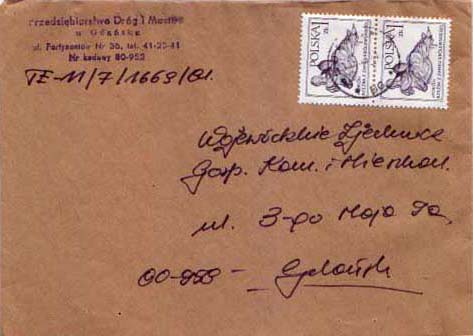 Przedsiębiorstwo Dróg i Mostów
w Gdańsku
ul. Partyzantów Nr 36, tel. 41-20-41
Nr kodowy 80-952
TE-11/7/1669/81.
POLSKA 1 zł
POLSKA 1 zł
Wojewódzkie Zjednocz
Gosp. Kom. i Mieszkan.
ul. 3-go Maja 9a,
00-958 - Gdańsk